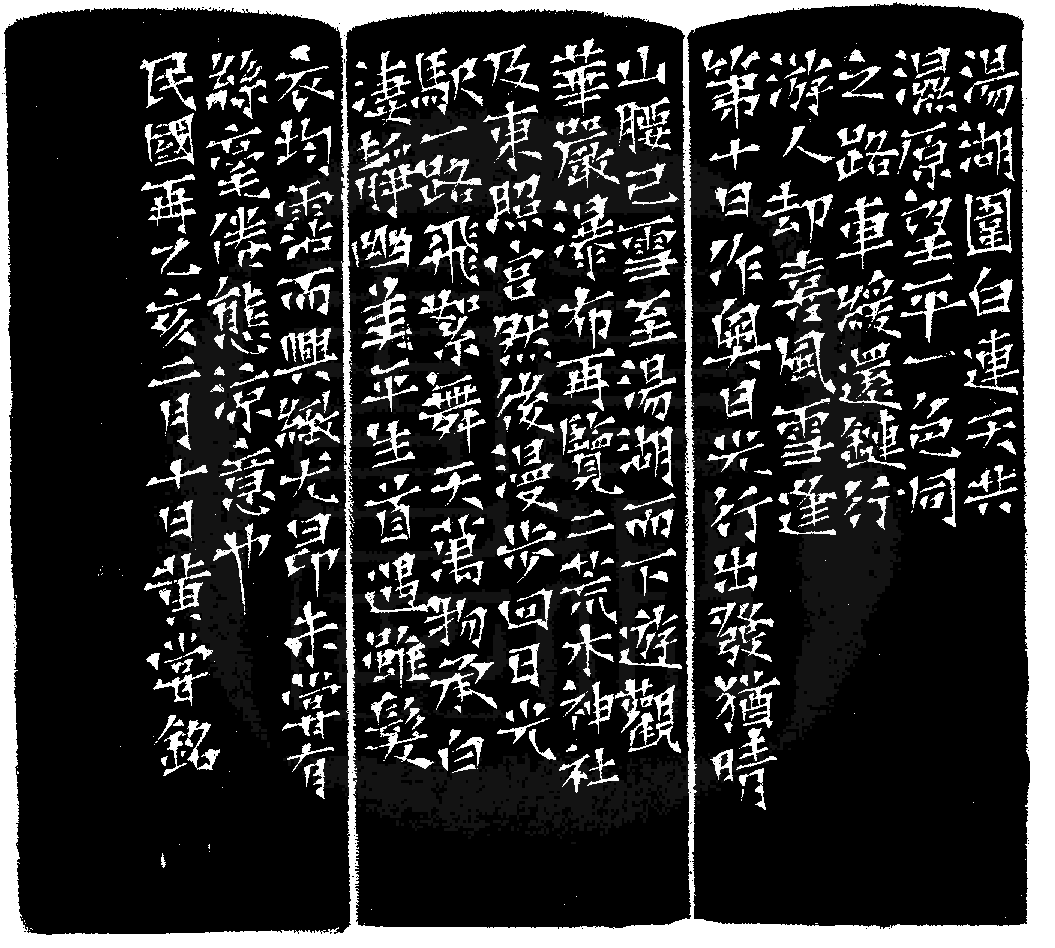 湯湖圍白連天共
濕原望平一色同
之路車緩還鏈行
游人却喜風雪逢
第十日作奥日光行出發猶晴
山腰已雪至湯湖而下遊觀
華嚴瀑布再覽二荒水神社
及東照宮然後漫步回日光
駅一路飛絮舞天萬物承白
淒靜幽美平生首遇雖髮
衣均霑而興緻尤昂未嘗有
絲毫倦態涼意也
民國再乙亥二月十日黄嘗銘